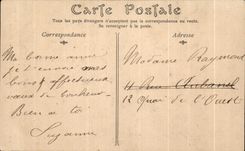 Carte Postale
Tous les pays étrangers n'acceptent pas la correspondance au recto.
Se renseigner à la poste.
Correspondance
Adresse
Ma bonne amie
je t'envoie mes
bons & affectueux
vœux de bonheur
Bien à toi
Suzanne
Madame Raymond
11 Rue Aubanel
12 Quai de l'Ouest